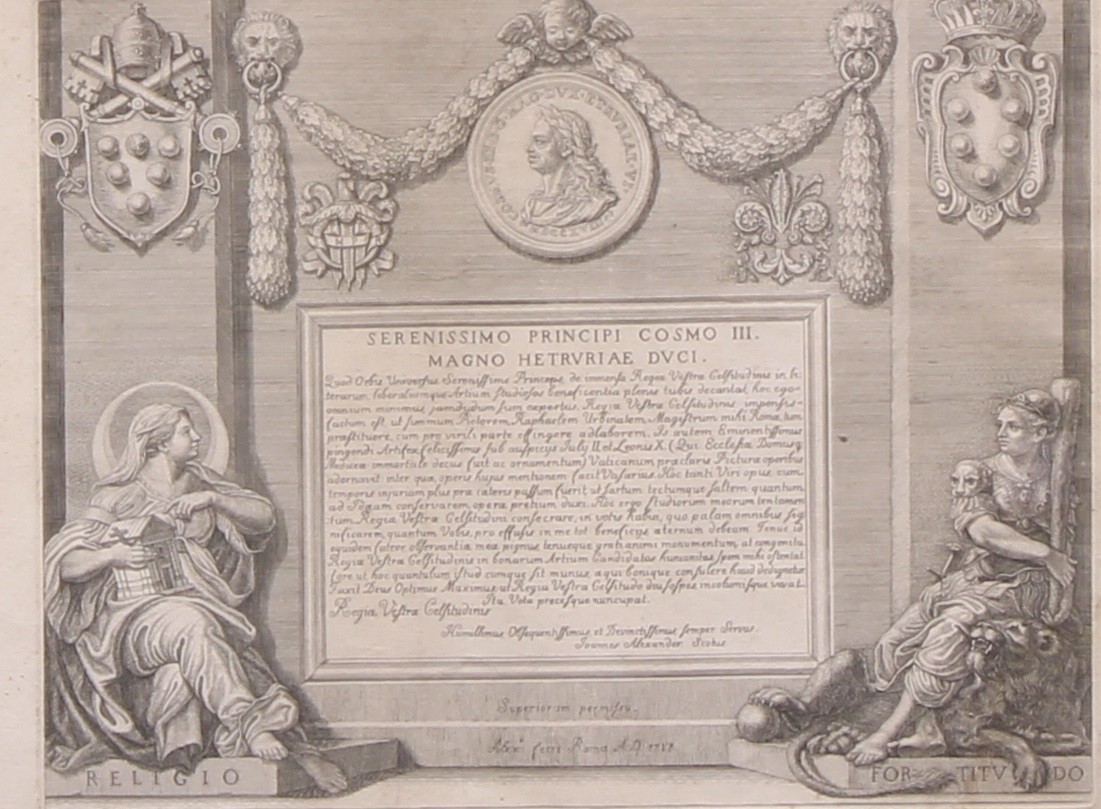 COSMVS III D G MAG DVX ETRVRIAE VI
SERENISSIMO PRINCIPI COSMO III.
MAGNO HETRVRIAE DVCI.
Quod Orbis Universus Serenissime Princeps de immensa Regiæ Vestræ Celsitudinis in li-
terarum, liberaliumque Artium studiosos beneficentia plenis tubis decantat, hoc ego
omnium minimus jamdudum sum expertus. Regiæ Vestræ Celsitudinis impensis
factum est, ut summum Pictorem Raphaelem Urbinatem Magistrum mihi Romæ tum
præstituere, cum pro virili parte effingere adlaborem. Is autem Eminentissimus
pingendi Artifex felicissimis sub auspicijs Julij II et Leonis X. (Qui Ecclesiæ Domusq
Mediceæ immortale decus fuit ac ornamentum) Vaticanum præclaris Picturæ operibus
adornavit inter quæ, operis hujus mentionem facit Vasarius. Hoc tanti Viri opus cum
temporis injuriam plus præ cæteris passum fuerit, ut sartum tectumque saltem quantum
ad Ideam conservarem, operæ pretium duxi. Hoc ergo studiorum meorum tentamen
tum Regiæ Vestræ Celsitudini consecrare, in votis habui, quo palam omnibus sig
nificarem, quantum Vobis, pro effusis in me tot beneficijs æternum debeam. Tenue id
equidem fateor observantiæ meæ pignus, tenueque grati animi monumentum, at congenita
Regiæ Vestræ Celsitudinis in bonarum Artium Candidatos humanitas spem mihi ostentat
fore ut hoc quantulum istud cumque sit munus, æqui bonique consulere haud dedignetur
Faxit Deus Optimus Maximus, ut Regia Vestra Celsitudo diu sospes incolumisque vivat.
Ita Vota precesque nuncupat.
Regiæ Vestræ Celsitudinis
Humillimus Obsequentissimus, et Devinctissimus semper Servus.
Joannes Alexander Scotus
Superiorum permissu.
Alexr. fecit Romæ A.D. 1718
RELIGIO
FOR TITV DO